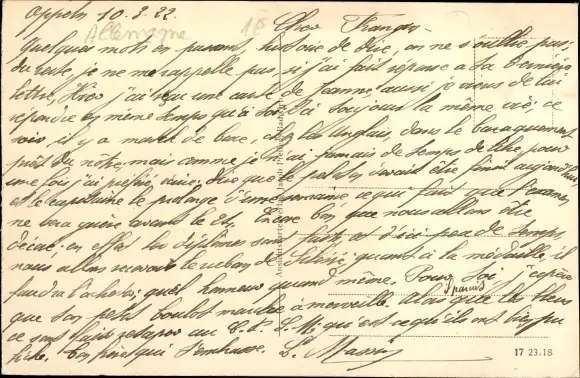 Oppeln 10.3.22.
Allemagne
18
Cher François
Quelques mots en passant, histoire de dire, on ne s'oublie pas;
du reste, je ne me rappelle pas, si j'ai fait réponse à ta dernière
lettre, Hier j'ai reçu une carte de Jeanne, aussi je viens de lui
répondre en même temps qu'à toi. Ici toujours la même vie; ce
soir il y a match de boxe, chez les anglais, dans le baraquement
près du nôtre, mais comme je n'ai jamais de temps de libre, pour
une fois j'ai préféré écrire. Dire que le devait être fini aujourd'hui,
et le capitaine le prolonge d'une semaine, ce qui fait que l'examen
ne sera guère avant le 24. Encore bon, que nous allons être
décoré: en effet les diplômes sont faits, et d'ici peu de temps
nous allons recevoir le ruban de Silésie, quant à la médaille, il
faudra l'acheter; quel honneur quand même. Pour toi, j'espère
que ton petit boulot marche à merveille, alors que les bleus
parait
ce sont fait retaper au qui est ce qu'ils ont bien pu
faire. Ton frère qui t'embrasse. L.
17 23.18